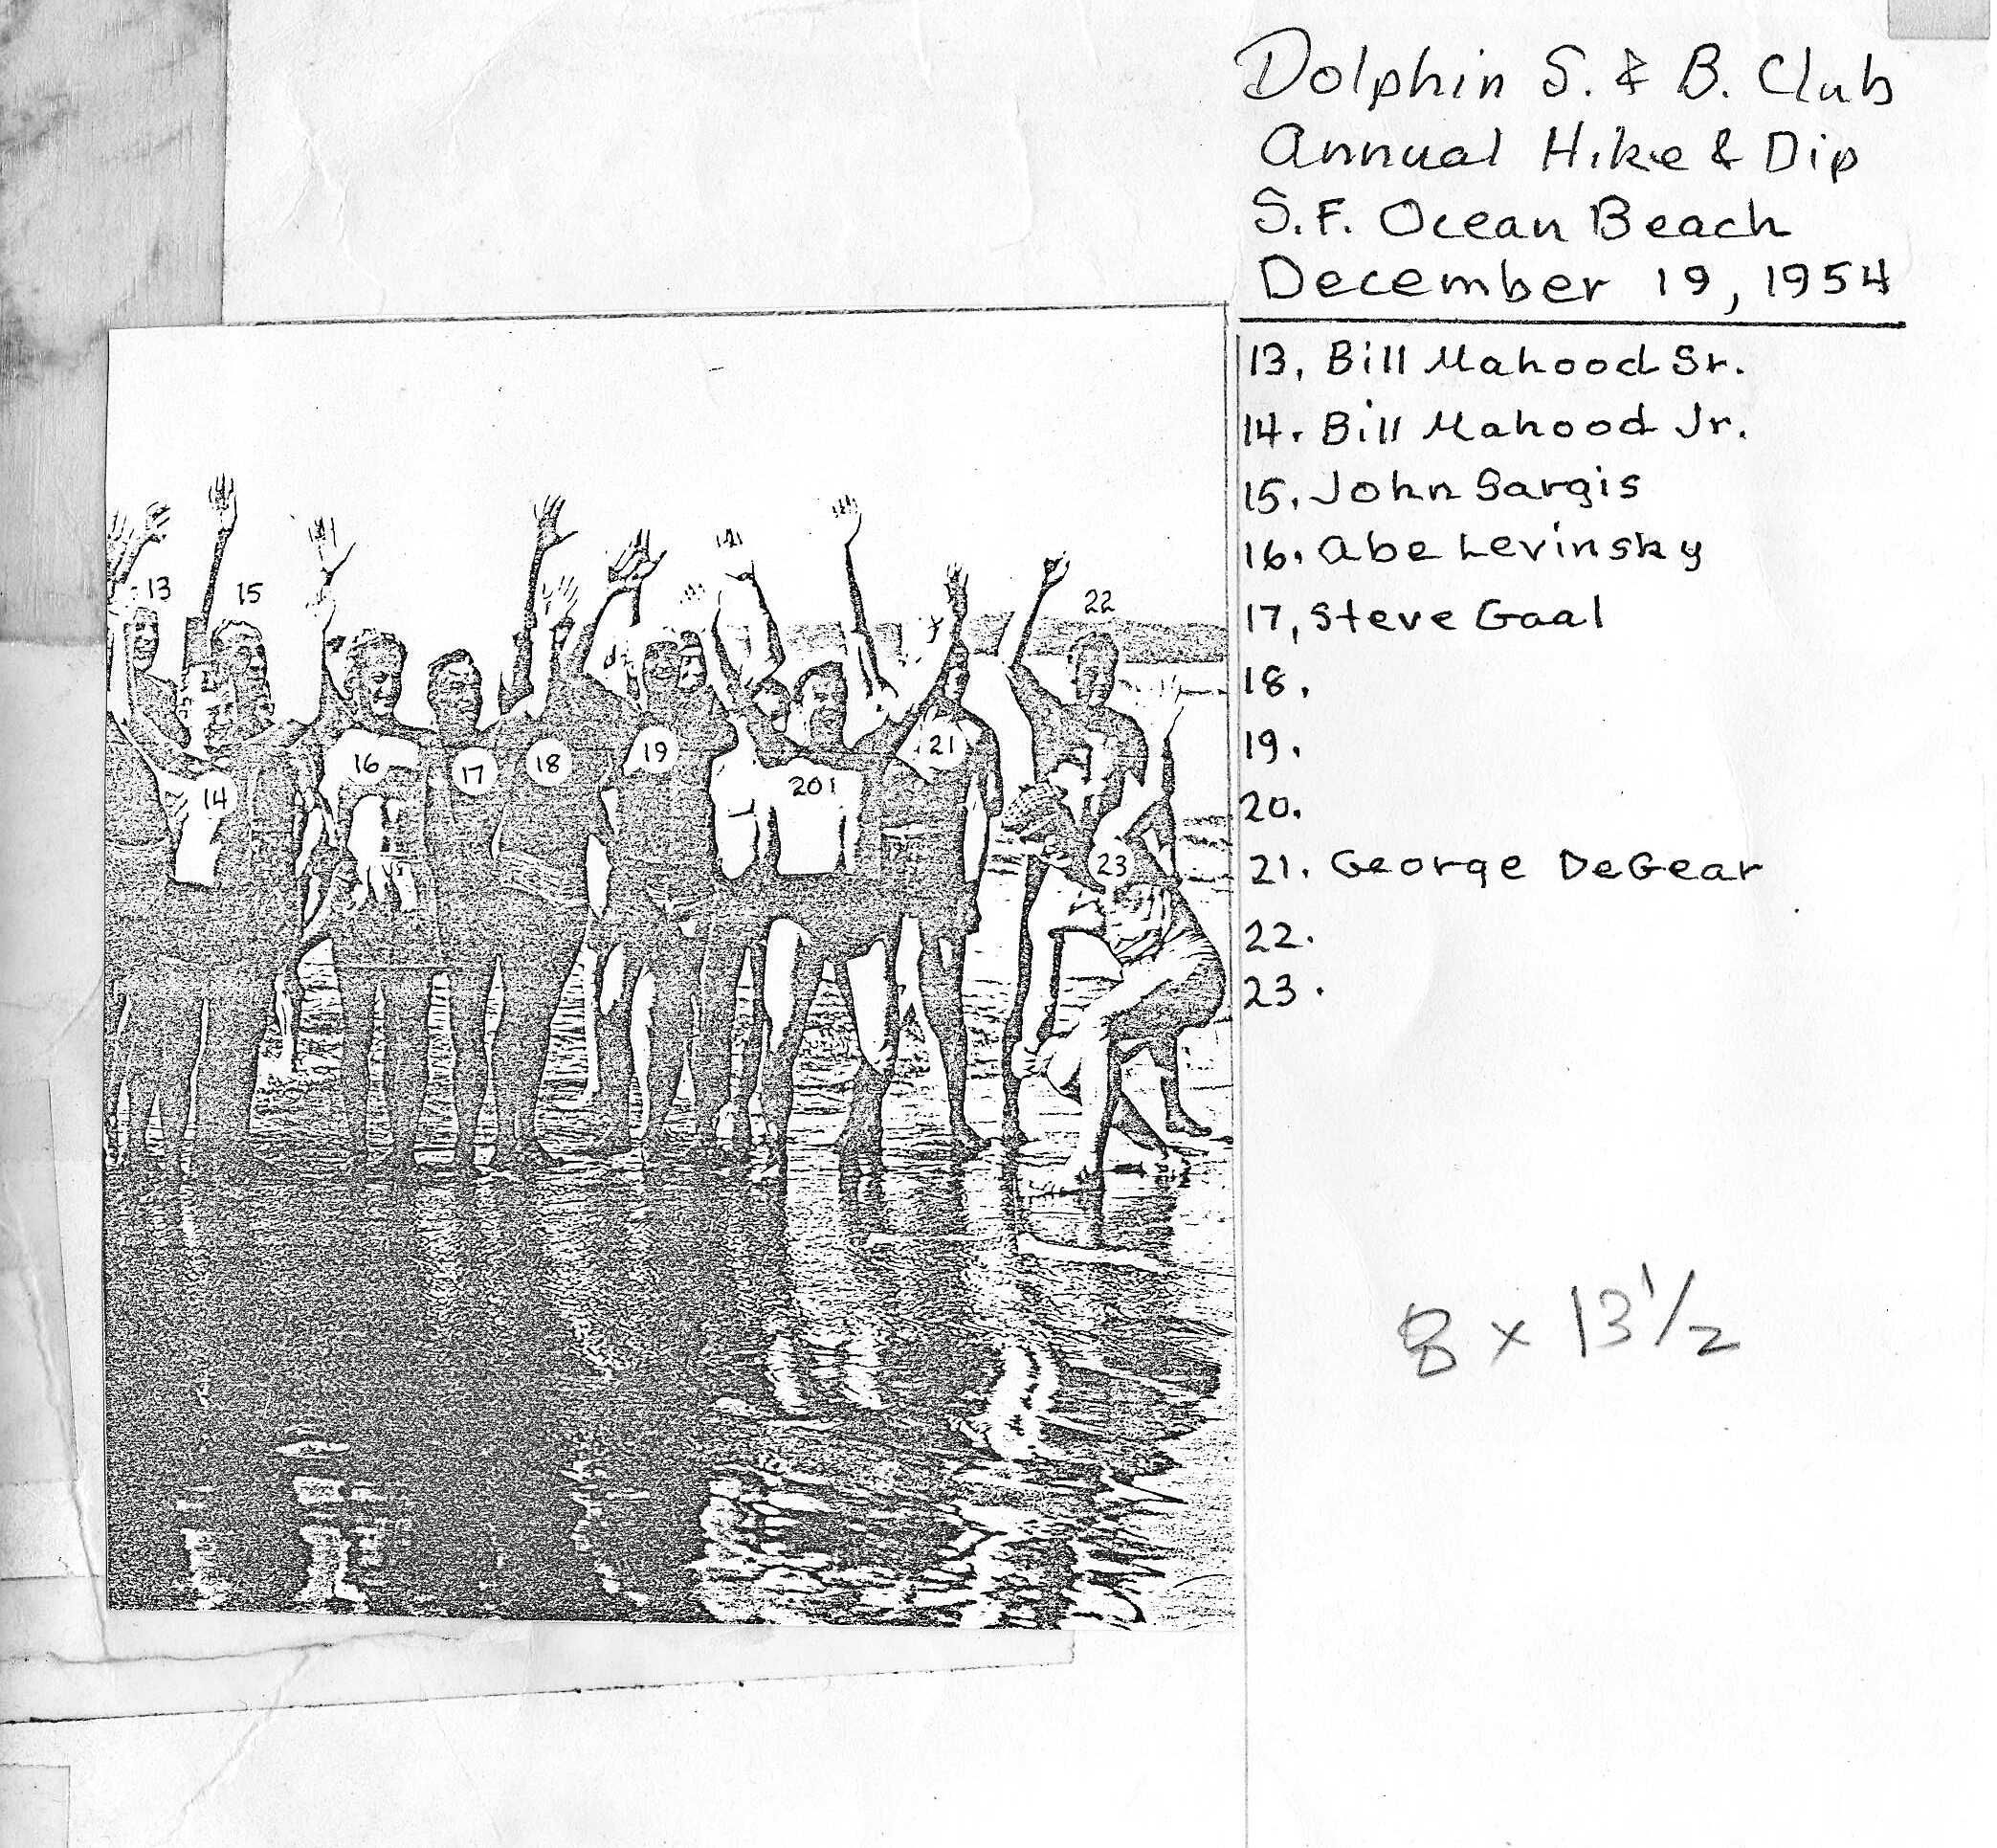 Dolphin S. & B. Club
Annual Hike & Dip
S.F. Ocean Beach
December 19, 1954
13, Bill Mahood Sr.
14. Bill Mahood Jr.
15. John Sargis
16. Abe Levinsky
17, Steve Gaal
18.
19.
20.
21. George DeGear
22.
23.
13
15
22
16
17
18
19
21
14
201
23
8 x 13 1/2